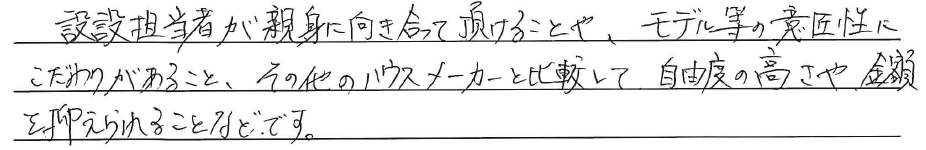 設設担当者が親身に向き合って頂けることや、モデル等の意匠性に
こだわりがあること、その他のハウスメーカーと比較して自由度の高さや金額
を抑えられることなどです。